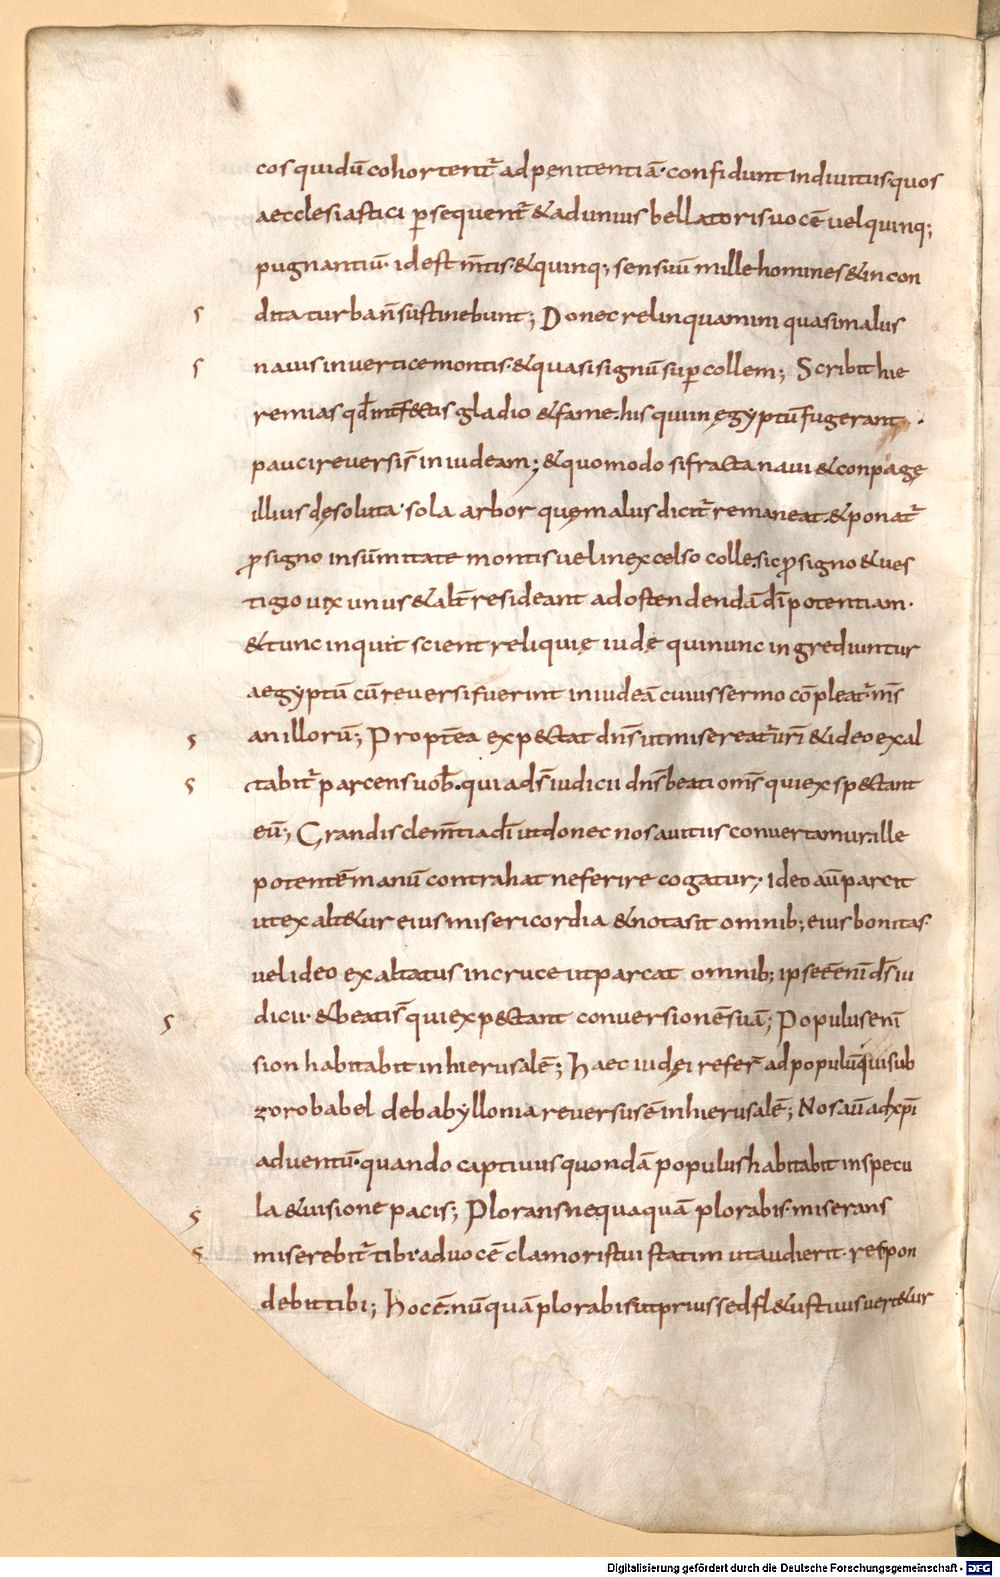 cos qui dū cohortent᷑ ad pęnitentiā· confidunt in diuitiis quos
aecclesiastici ꝑsequent᷑ & ad unius bellatoris uocē uel quinq;
pugnantiū· id est m̄tis & quinq; sensuū mille homines & incon
dita turba n̄ sustinebunt; Donec relinquamini quasi malus
s
nauis in uertice montis· & quasi signū sup̄ collem; Scribit hie
s
remias qđ int̄fectis gladio & fame· his qui in ęgyptū fugerant·
pauci reuersi s̄ in iudeam; & quomodo si fracta naui & conpagę
illius dęsoluta· sola arbor quę malus dicit᷑ remaneat· & ponat᷑
ꝓ signo in sūmitate montis uel in excelso colle· sic ꝓ signo & ues
tigio uix unus & alt̄ resideant ad ostendendā dī potentiam·
& tunc inquit scient reliquię iudę qui nunc ingrediuntur
aegyptū cū reuersi fuerint in iudeā cuius sermo cōpleat᷑ m̄s
an illorū; Propt̄ea expectat dn̄s ut misereat᷑ ur̄i & ideo exal
s
tabit᷑ parcens uob̄· quia ds̄ iudicii dn̄s beati om̄s qui exspectant
s
eū; Grandis clem̄tia dī ut donec nos auitiis conuertamur· ille
potentē manū contrahat ne ferire cogatur; Ideo aū parcit
ut exalt&ur eius misericordia & nota sit omnib; eius bonitas·
uel ideo exaltatus in cruce ut parcat omnib; ipse ē enī ds̄ iu
dicii· & beati s̄ qui expectant conuersionē suā; Populus enī
s
sion habitabit in hierusalē; Haec iudęi refer̄ ad populū qui sub
zorobabel de babyllonia reuersus ē in hierusalē; Nos aū ad xp̄i
aduentū· quando captiuus quondā populus habitabit in specu
la & uisione pacis; Plorans nequaquā plorabis· miserans
s
miserebit᷑ tibi· ad uocē clamoris tui statim ut audierit· respon
s
debit tibi; Hoc ē· nūquā plorabis ut prius sed fl&us tuus uert&ur
Digitalisierung gefördert durch die Deutsche Forschungsgemeinschaft - DFG